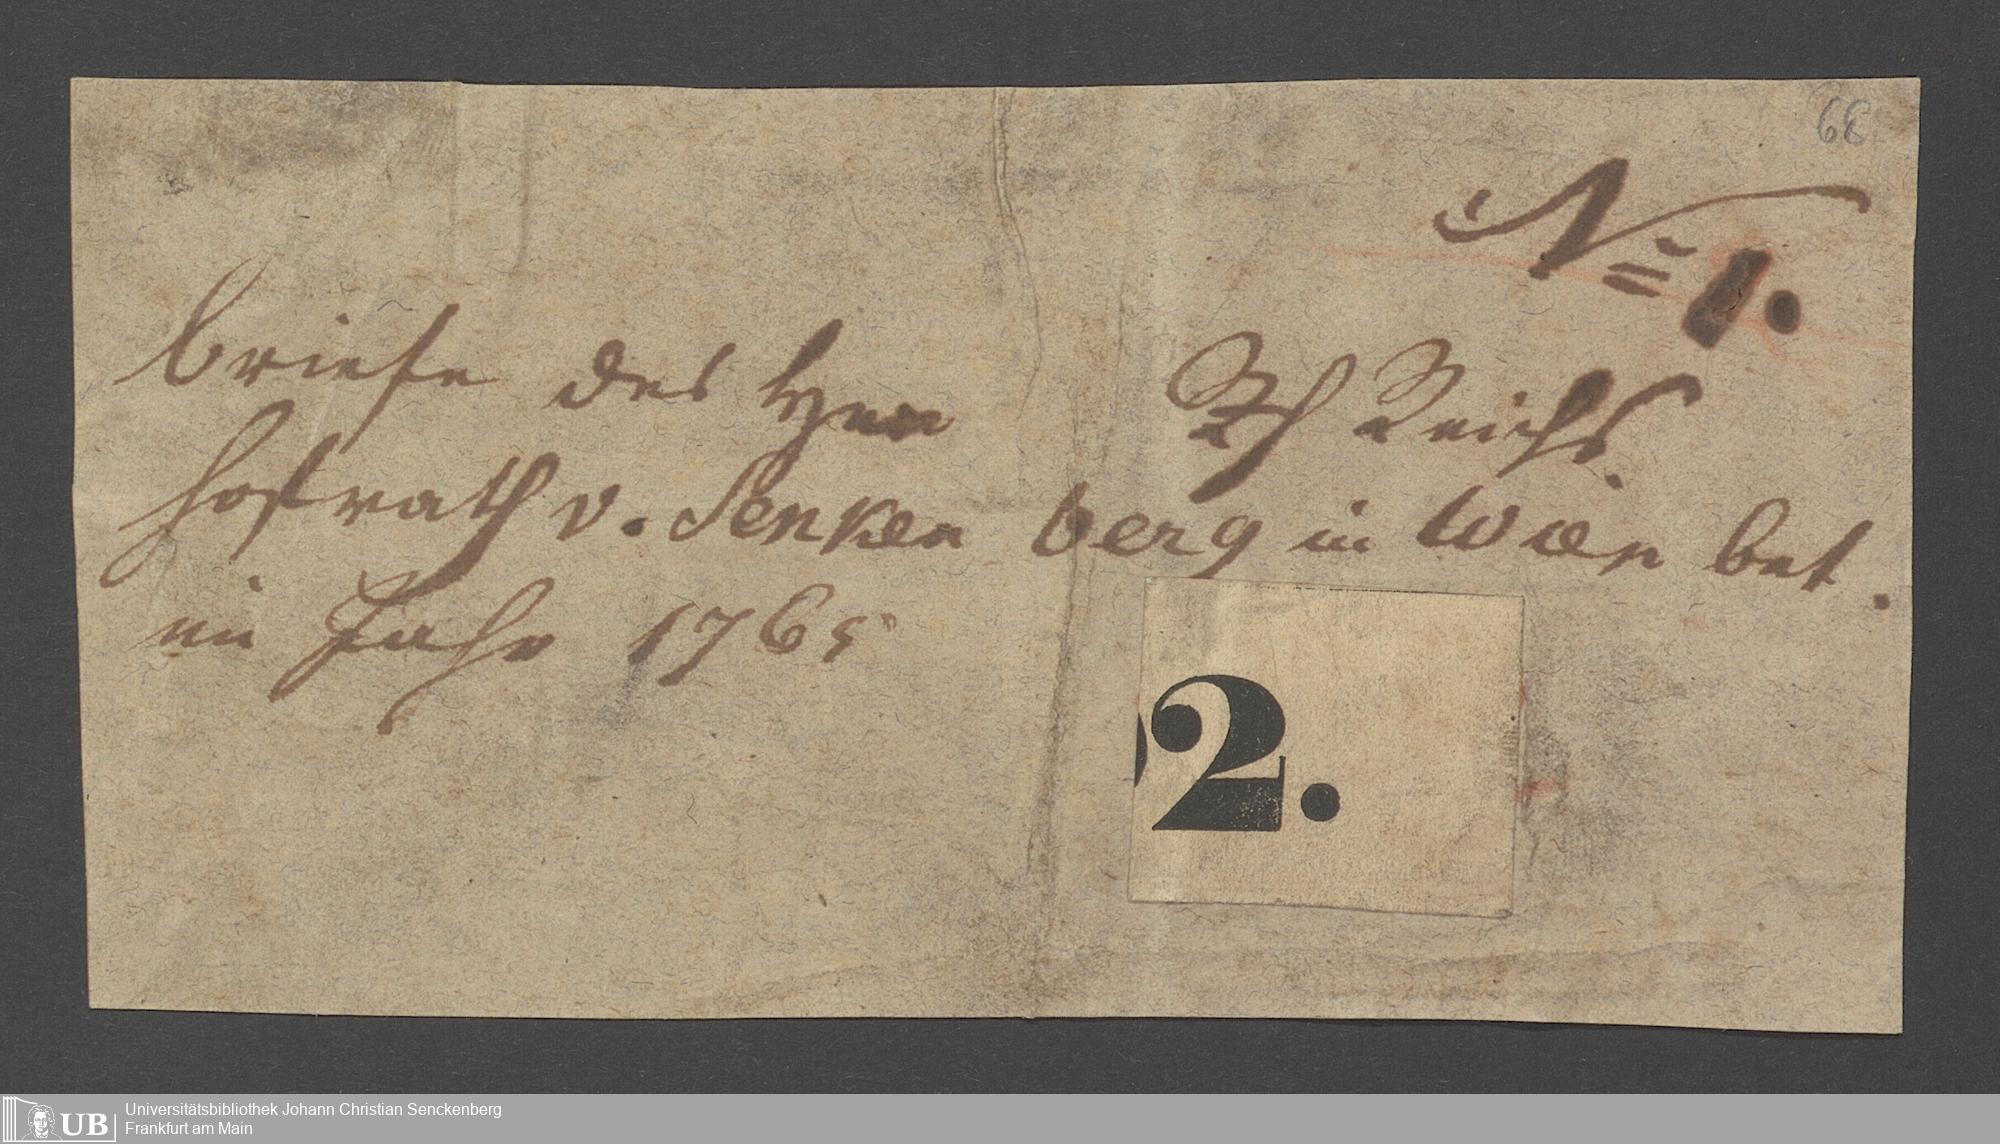 68
No 1.
briefe des Herrn Rh Reichs
hofrath v. Senken berg in Wien bet.
im Jahr 1765
2.
UB
Universitätsbibliothek Johann Christian Senckenberg
Frankfurt am Main